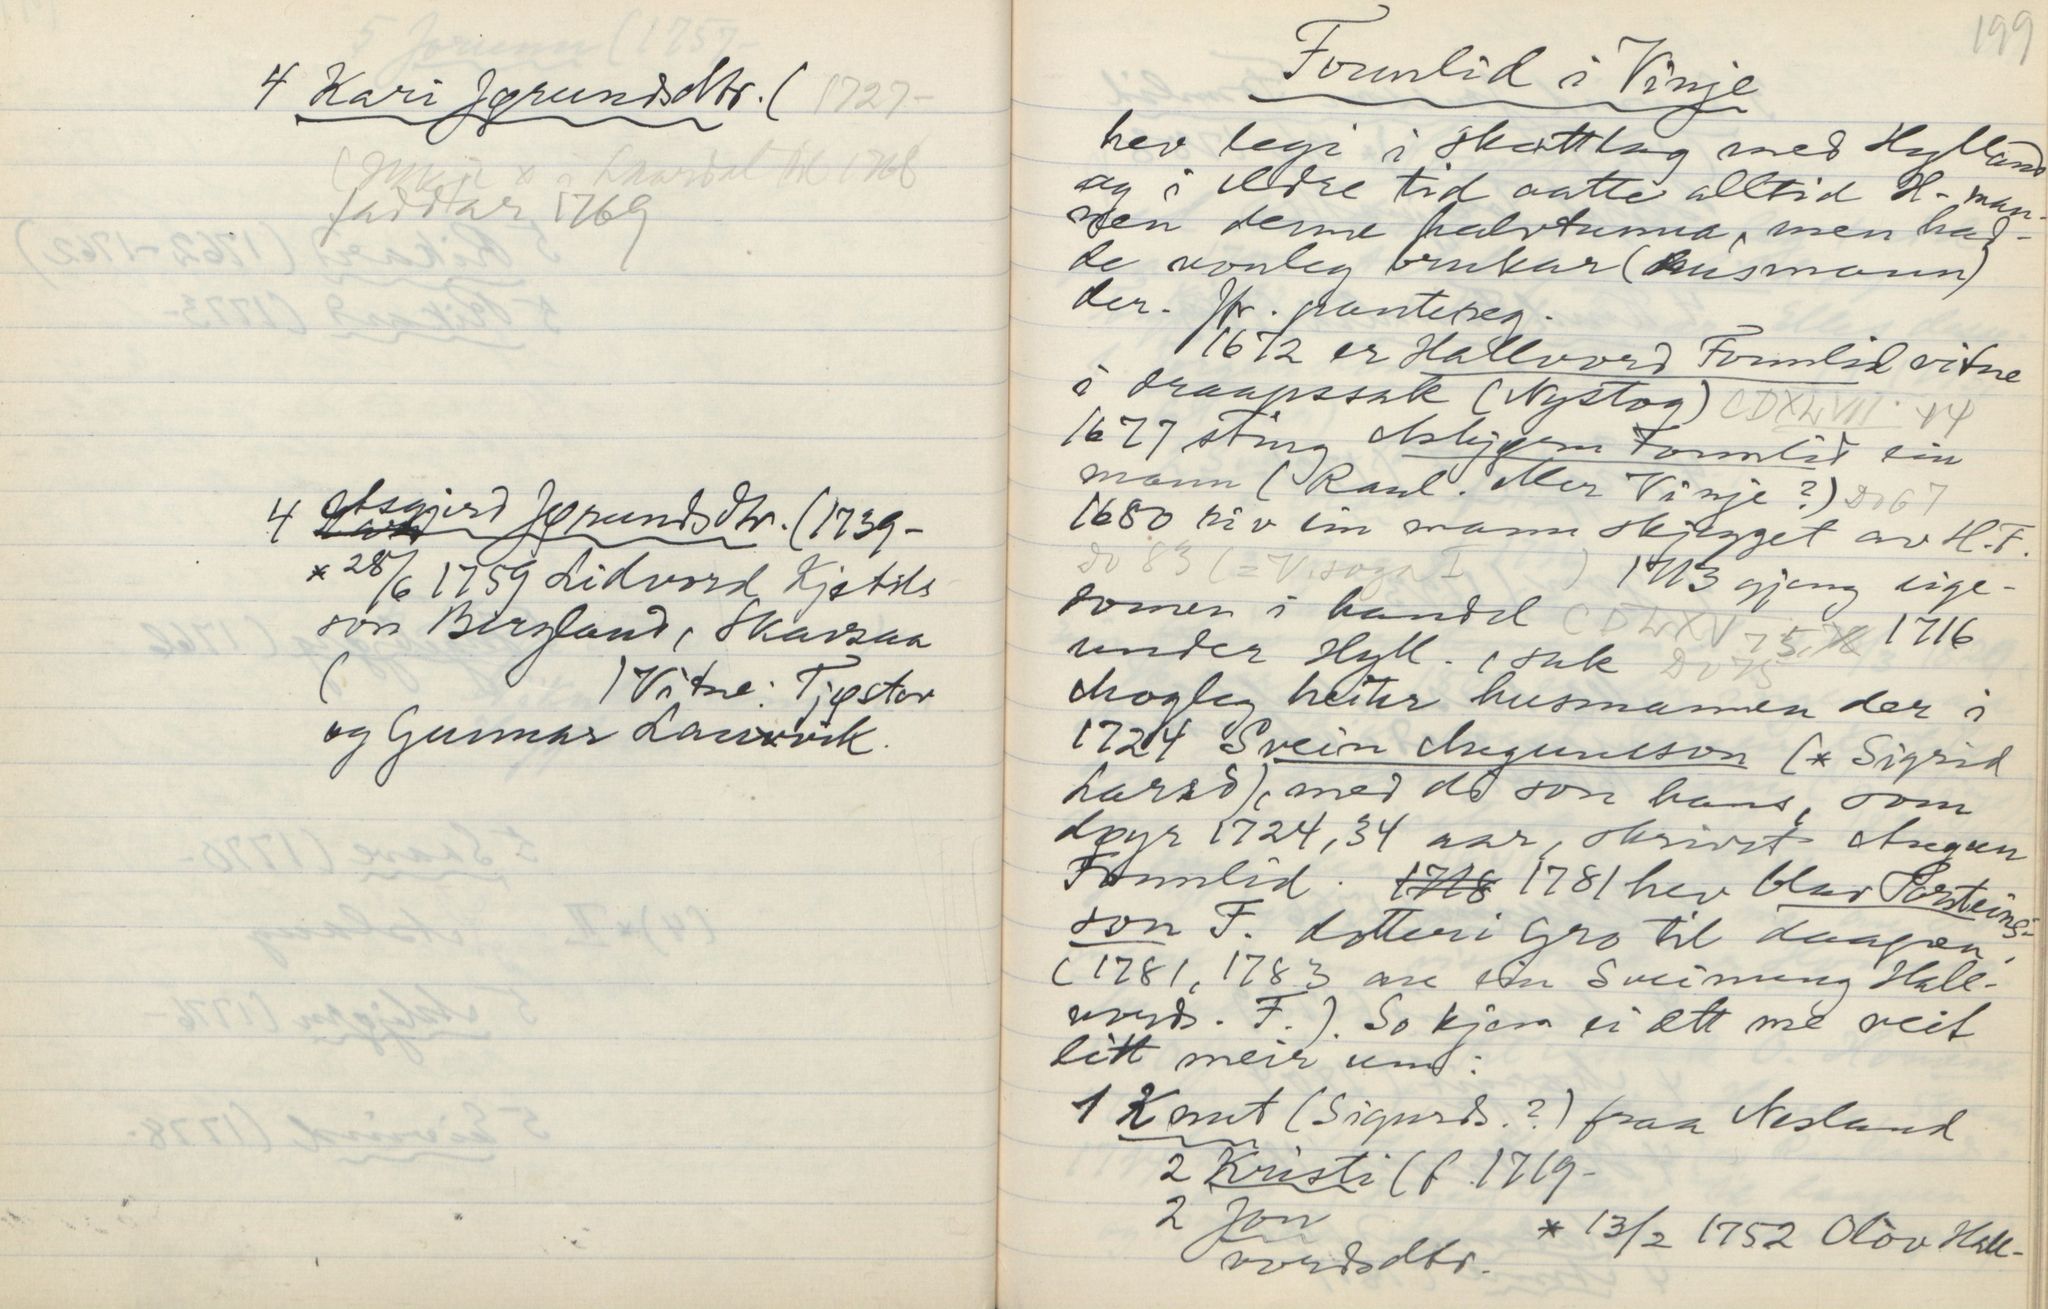 4 Kari Jørundsdtr. ( 1727-
faddar 1769
4 Asgjerd Jørundsdtr. (1739-
* 28/6 1759 Lidvord Kjetils
son Bergland, Skarsaa
( ) Vitne: Tjøstov
og Gunnar Laurvik.
199
Formlid i Vinje
hev legi i skattlag med Hylland
og i eldre tid aatte alltid H-man-
nen denne halvtunna, men had-
de vonleg brukar (husmann)
der. Jfr. pantereg.
1672 er Hallvord Formlid vitne
i draapssak (Nystog) CDXLVII. 44
1677 sting Asbjørn Formlid ein
mann (Raul. eller Vinje?) Do 67
1680 riv ein mann skjegget av H.F.
Do 83 (= V.soga I ) 1713 gjeng eige-
domen i handel CDLXV 75, 1716
under Hyll. , sak Do 75
Mogleg heiter husmannen der i
1724 Svein Aagunsson (* Sigrid
Larsd), med di son hans, som
døyr 1724, 34 aar, skrivst Aagun
Formlid. 1718 1781 hev Olav Torsteins-
son F. dotteri Gro til daapen,
(1781, 1783 are ein Sveinung Hall-
vords. F.). So kjem ei ætt me veit
litt meir um:
1 Knut (Sigurds.?) fraa Nesland
2 Kristi (f. 1719-
2 Jon * 13/2 1752 Olòv Hall-
vordsdtr.